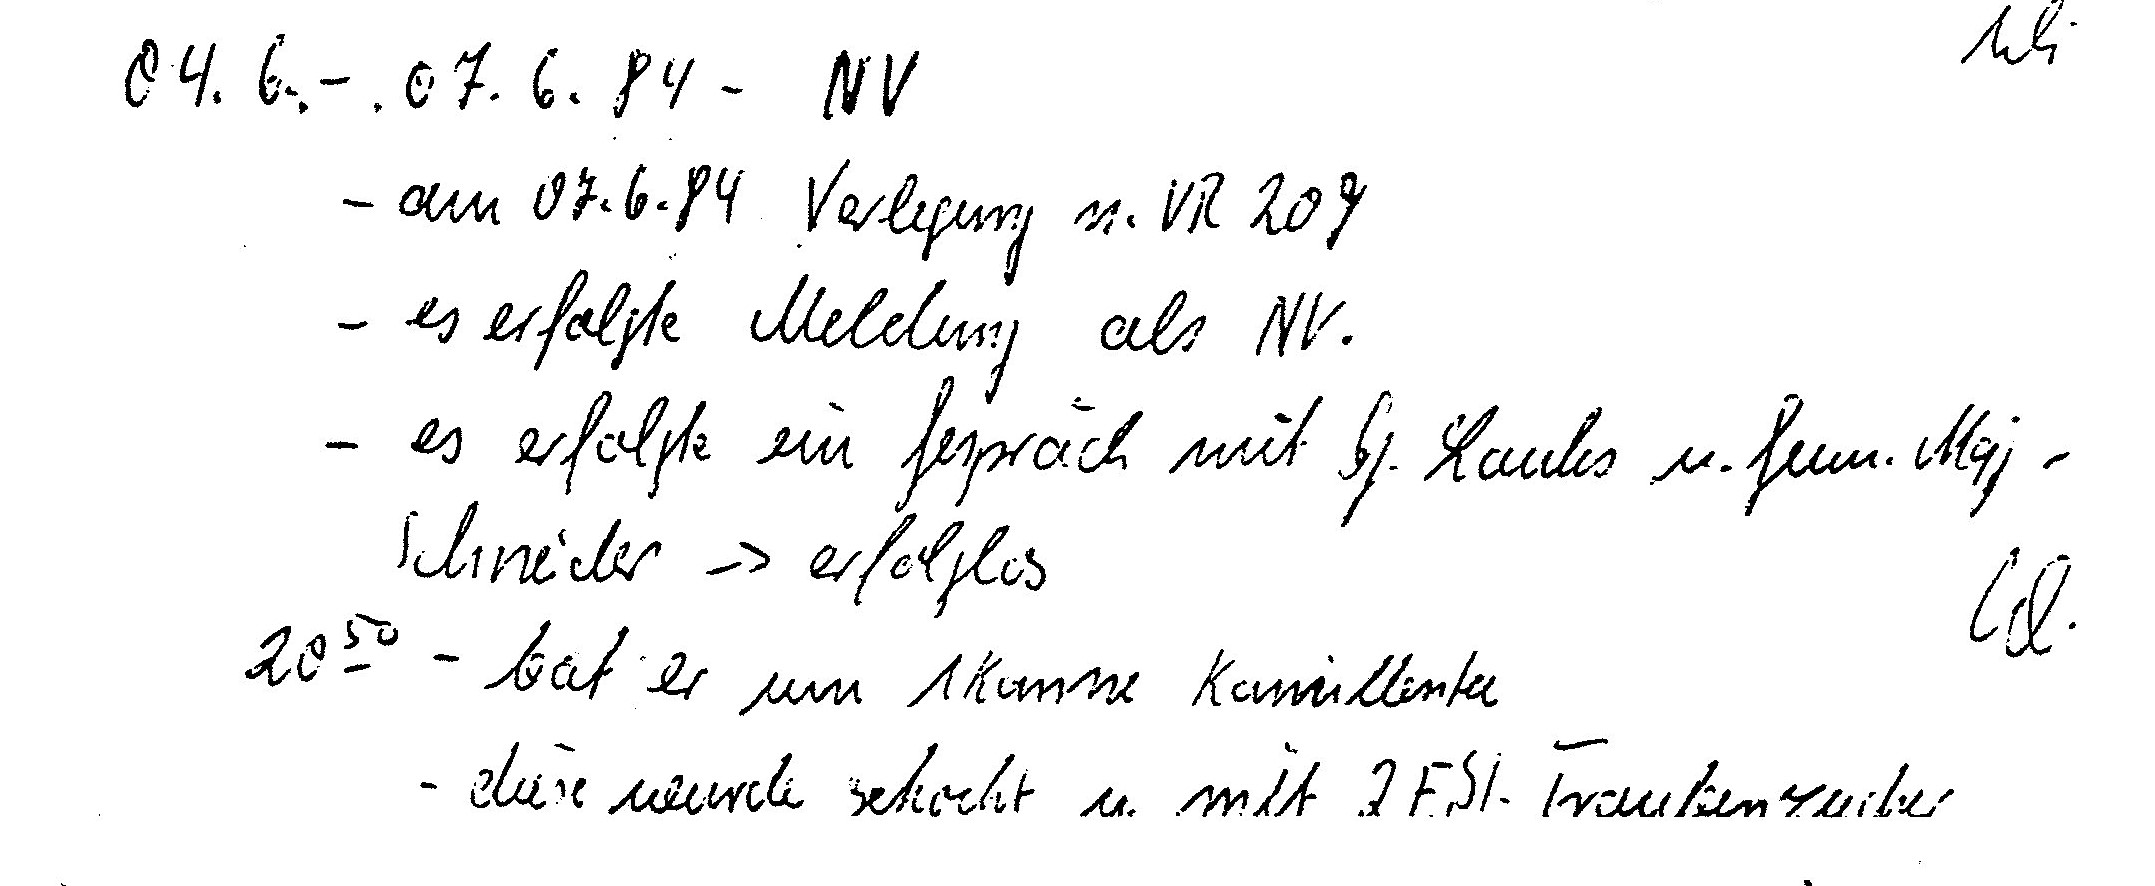 04.6. - 07.6.84 - NV
- am 07.6.84 Verlegung n. VR 209
- es erfolgte Meldung als NV.
- es erfolgte ein Gespräch mit Gen. Maj -
Schneider -> erfolglos
20 50 - bat er um 1 Kanne Kamillentee
- diese wurde gekocht u. mit 2 Eßl. Traubenzucker